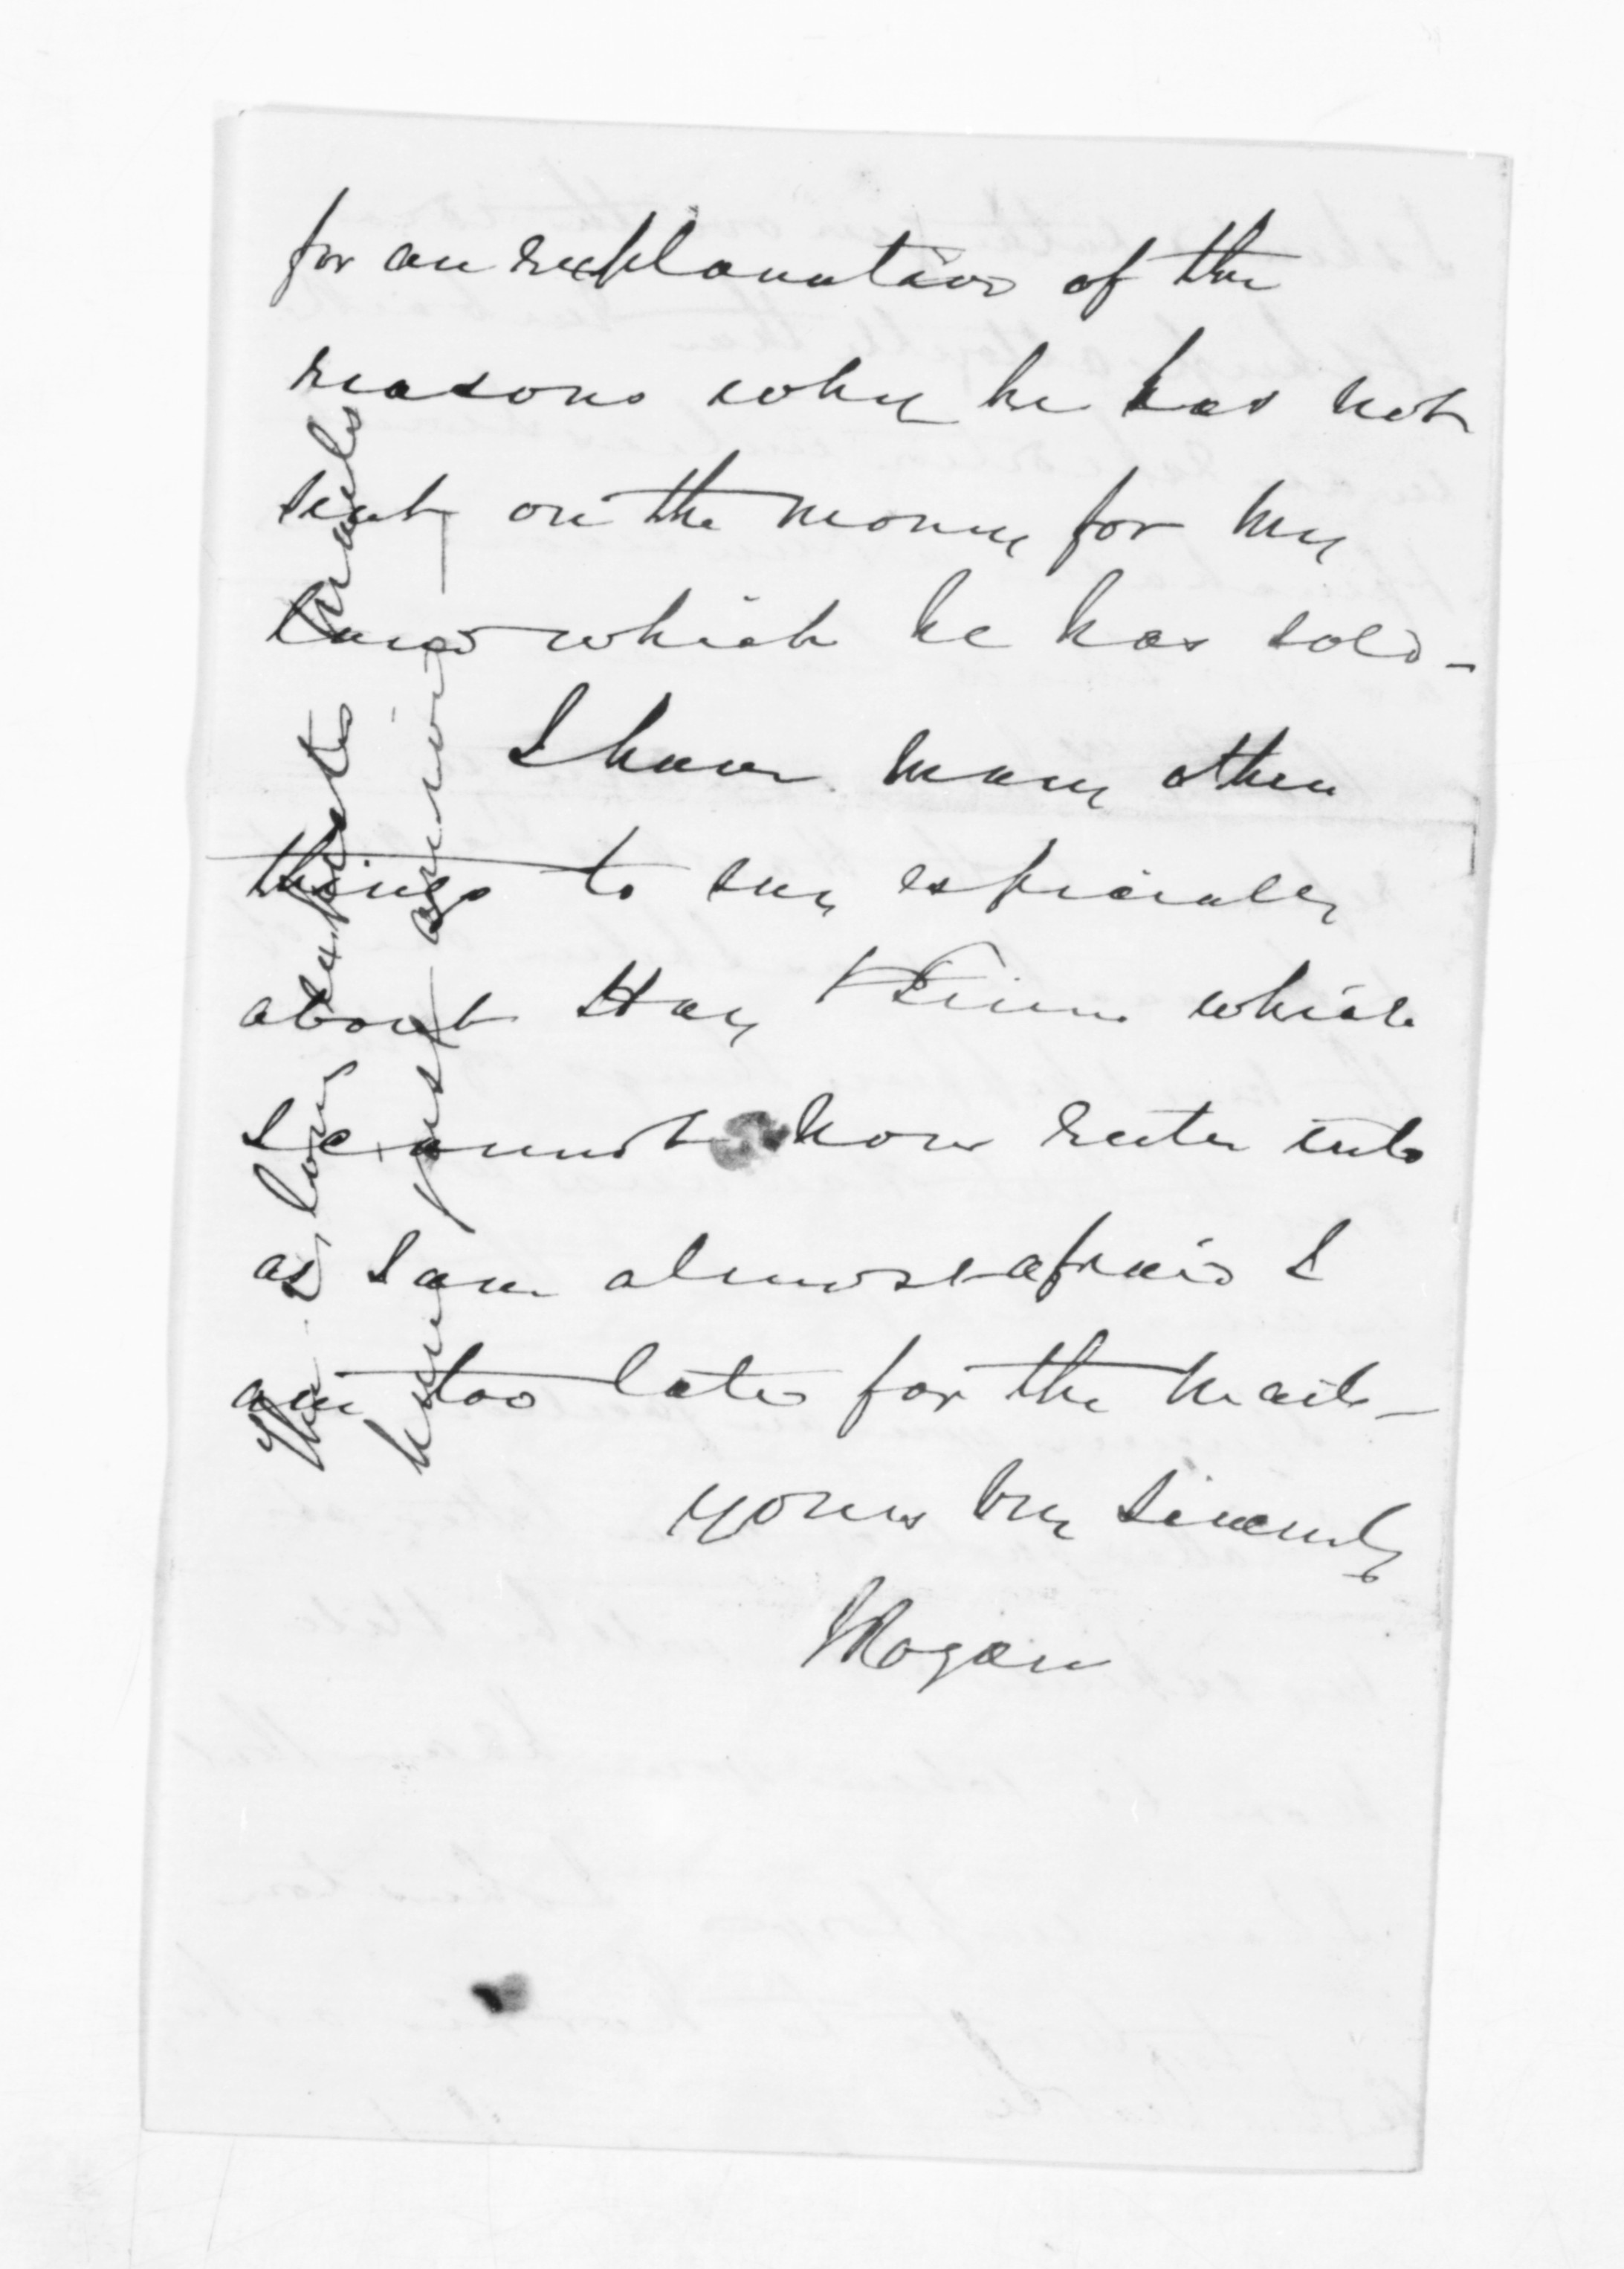 for an explanation of the
reasons why he has not
sent on the money for my
land which he has sold -
I have many other
things to say especially
about Hay & which
I cannot now enter into
as I am almost afraid I
am too late for the mail -
yours very sincerely
The long expected
have just arrived -